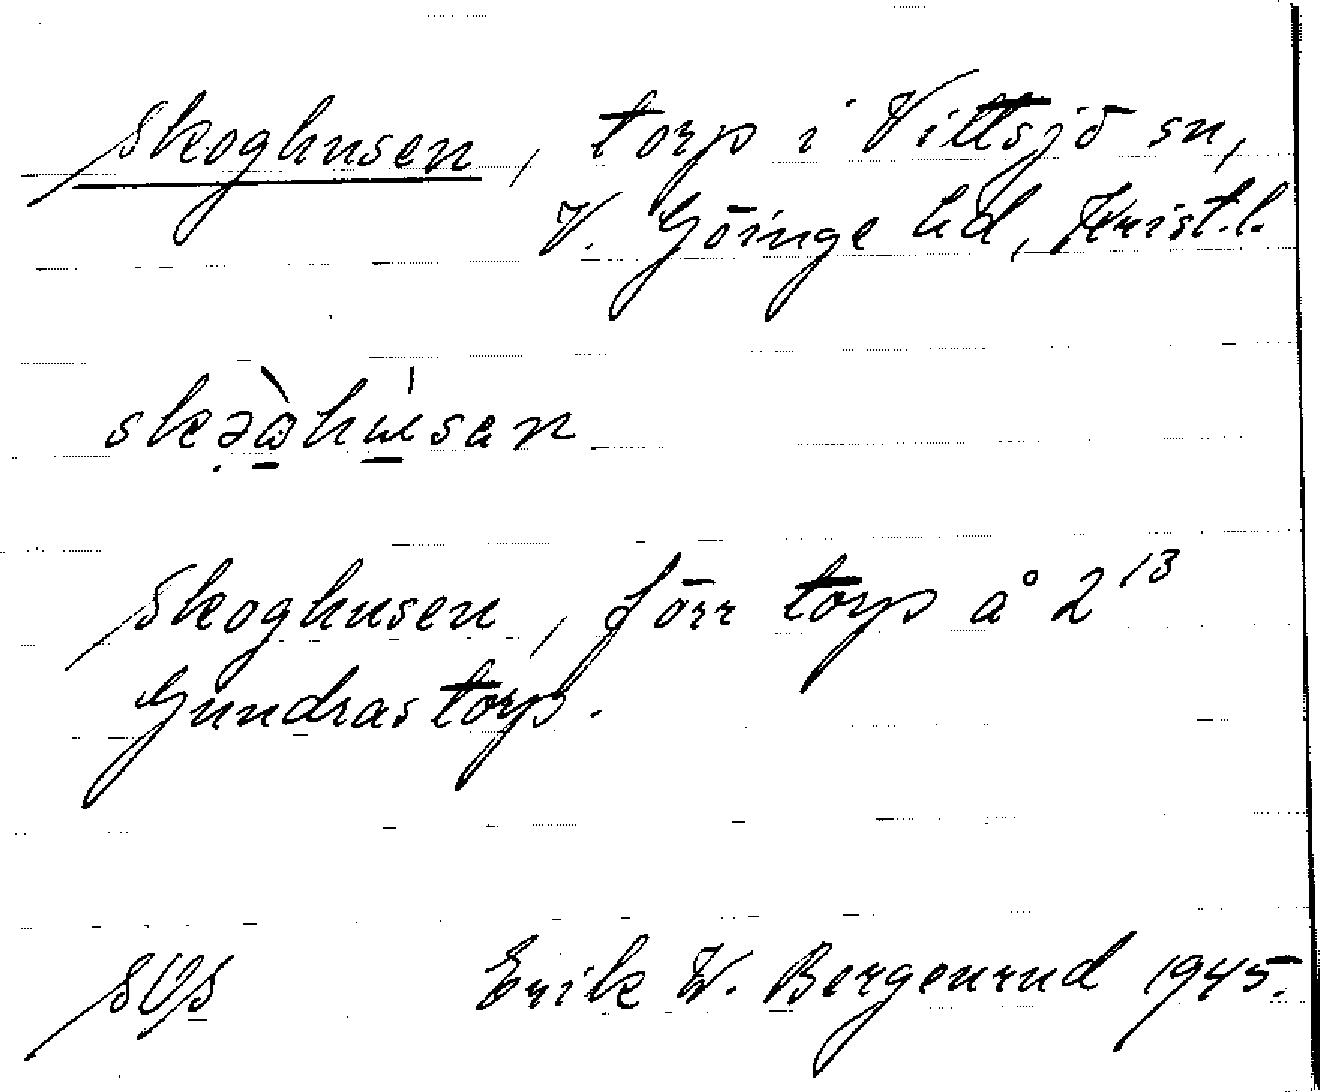 Skoghusen, torp i Vittsjö sn,
V. Göinge hd, Krist.l.
Skoghusen, förr torp å 2¹³
Gundrastorp.
Erik W. Bergenrud 1945.